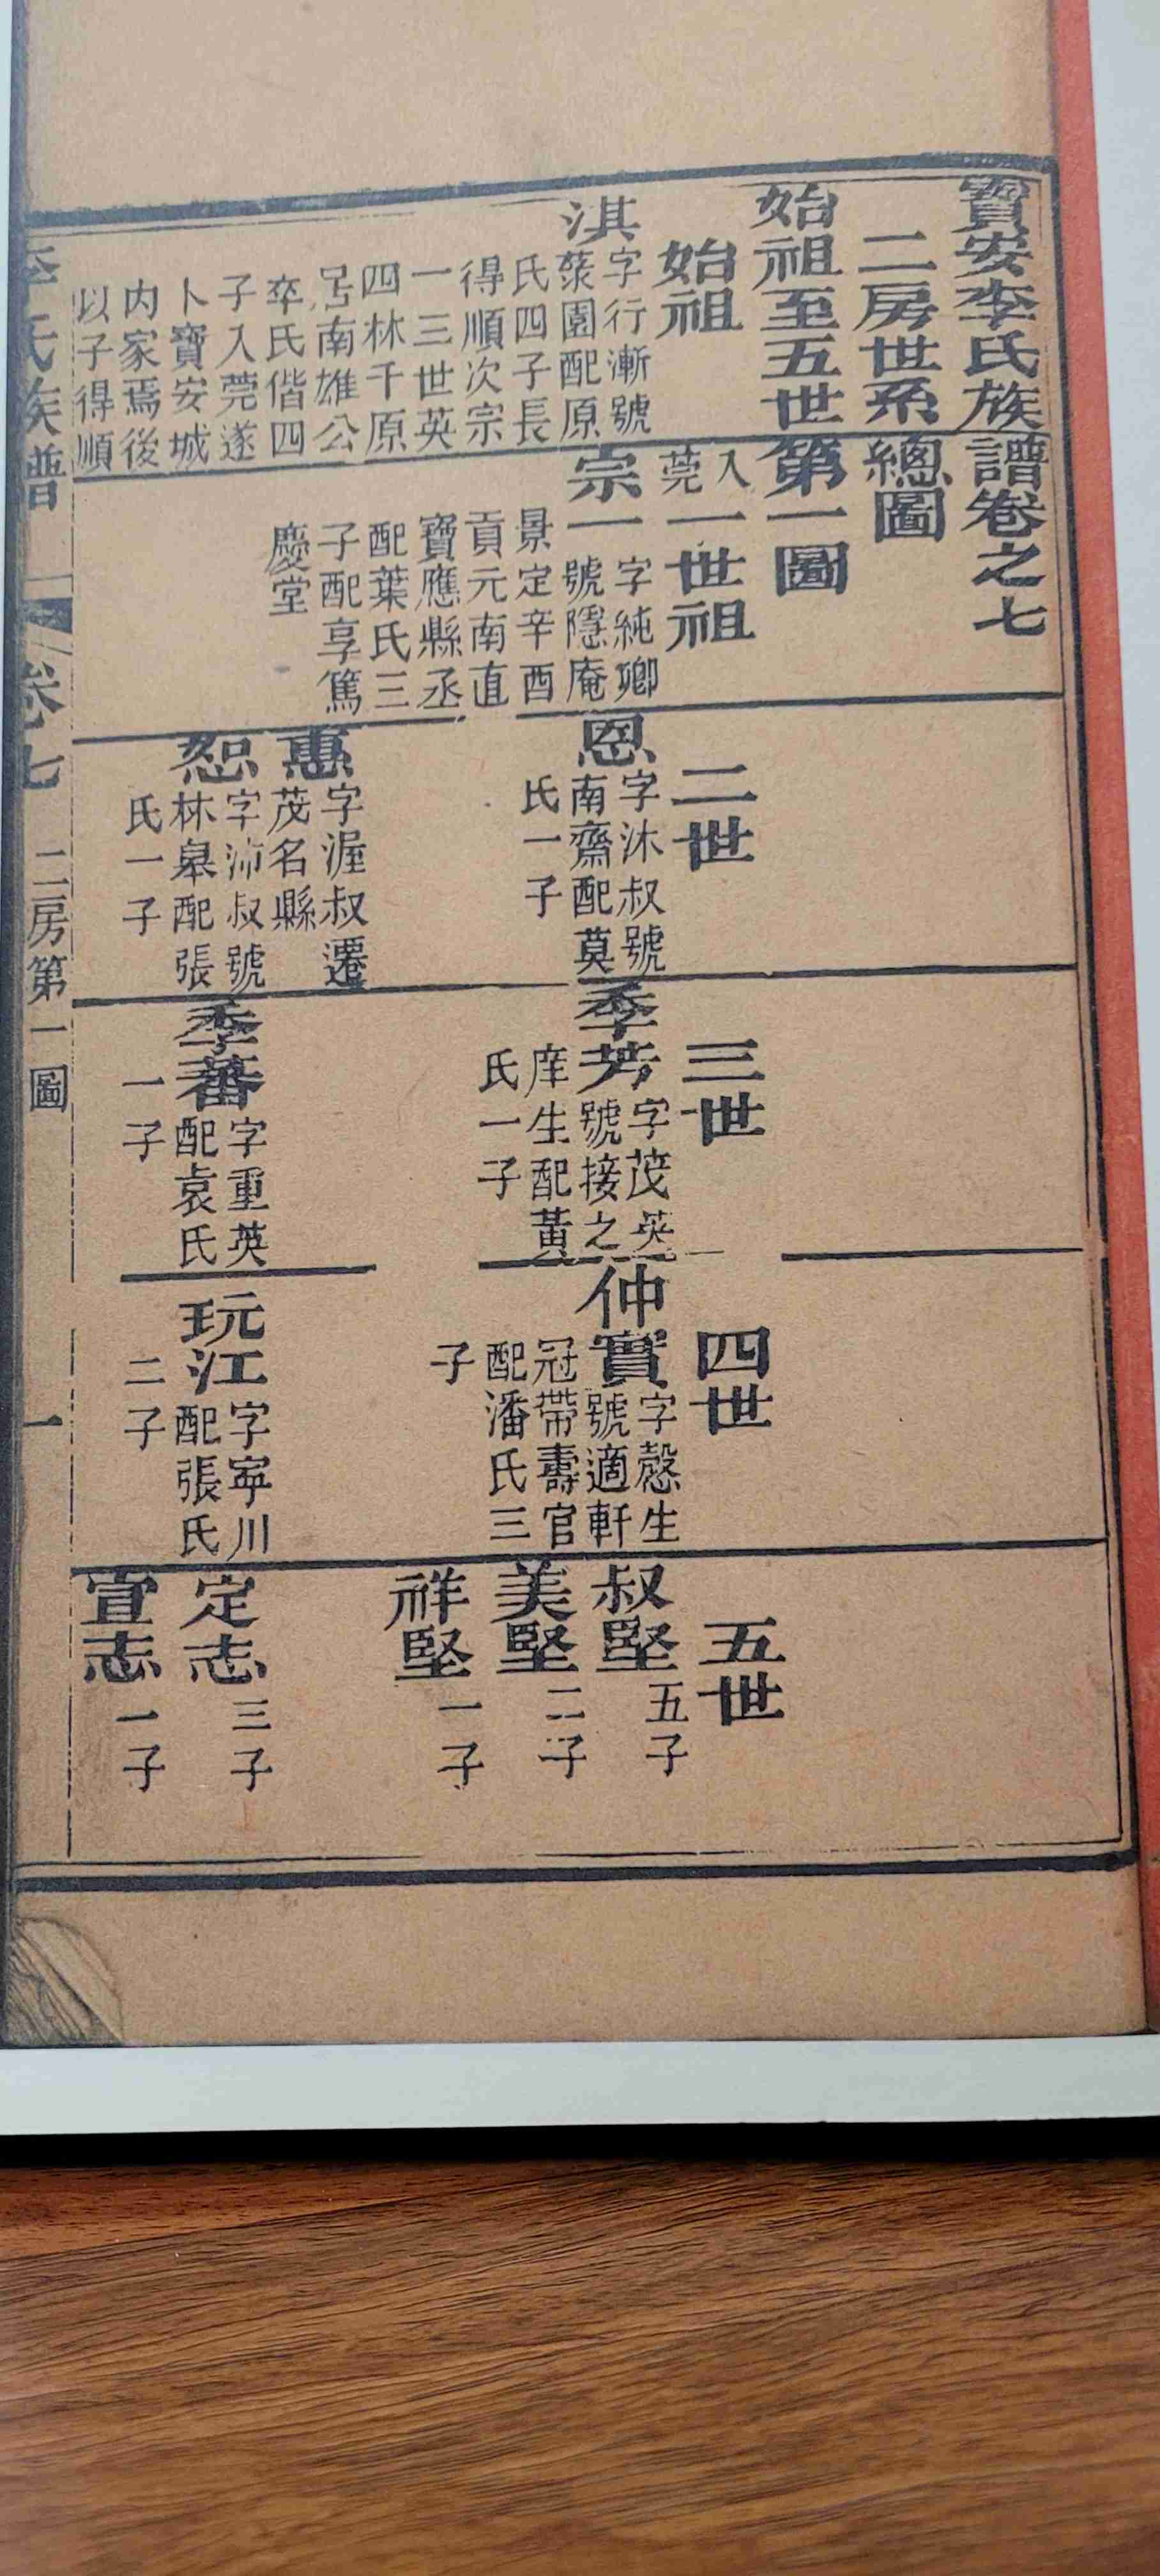 寶安李氏族譜卷之七
二房世系總圖
始祖至五世第一圖
始祖
淇
字行漸號
蔡園配原
氏四子長
得順次宗
一三世英
四林千原
南雄公
卒氏偕四
子入莞遂
卜寶安城
内家焉後
以子得順
入莞一世祖
宗一
字純卿
號隱庵
景定辛酉
貢元南直
寶應縣丞
配葉氏三
子配享篤
慶堂
二世
恩
字沐叔號
南齋配莫
氏一子
惠
字渥叔遷
茂名縣
恕
字沛叔號
林皋配張
氏一子
三世
季芳
字茂英
號接之
庠生配黃
氏一子
季蕃
字重英
配袁氏
一子
四世
仲實
字慤生
號適軒
冠帶壽官
配潘氏三
子
玩江
字寧川
配張氏
二子
五世
叔堅
五子
美堅
二子
祥堅
一子
定志
三子
宣志
一子
李氏族譜
卷七
二房第一圖
一